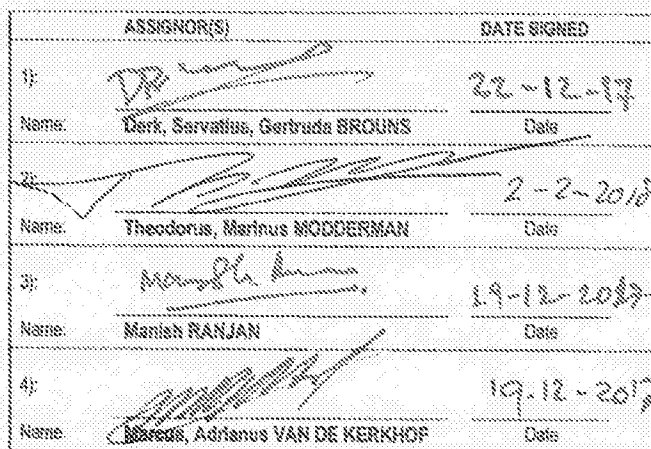 ASSIGNOR(S) DATE SIGNED
1): 22-12-17
Name: Derk, Servatius, Gertruda BROUNS Date
2): 2-2-2018
Name: Theodorus, Marinus MODDERMAN Date
3): 19-12-2017
Name: Manish RANJAN Date
4): 19-12-2017
Name: Marcus, Adrianus VAN DE KERKHOF Date